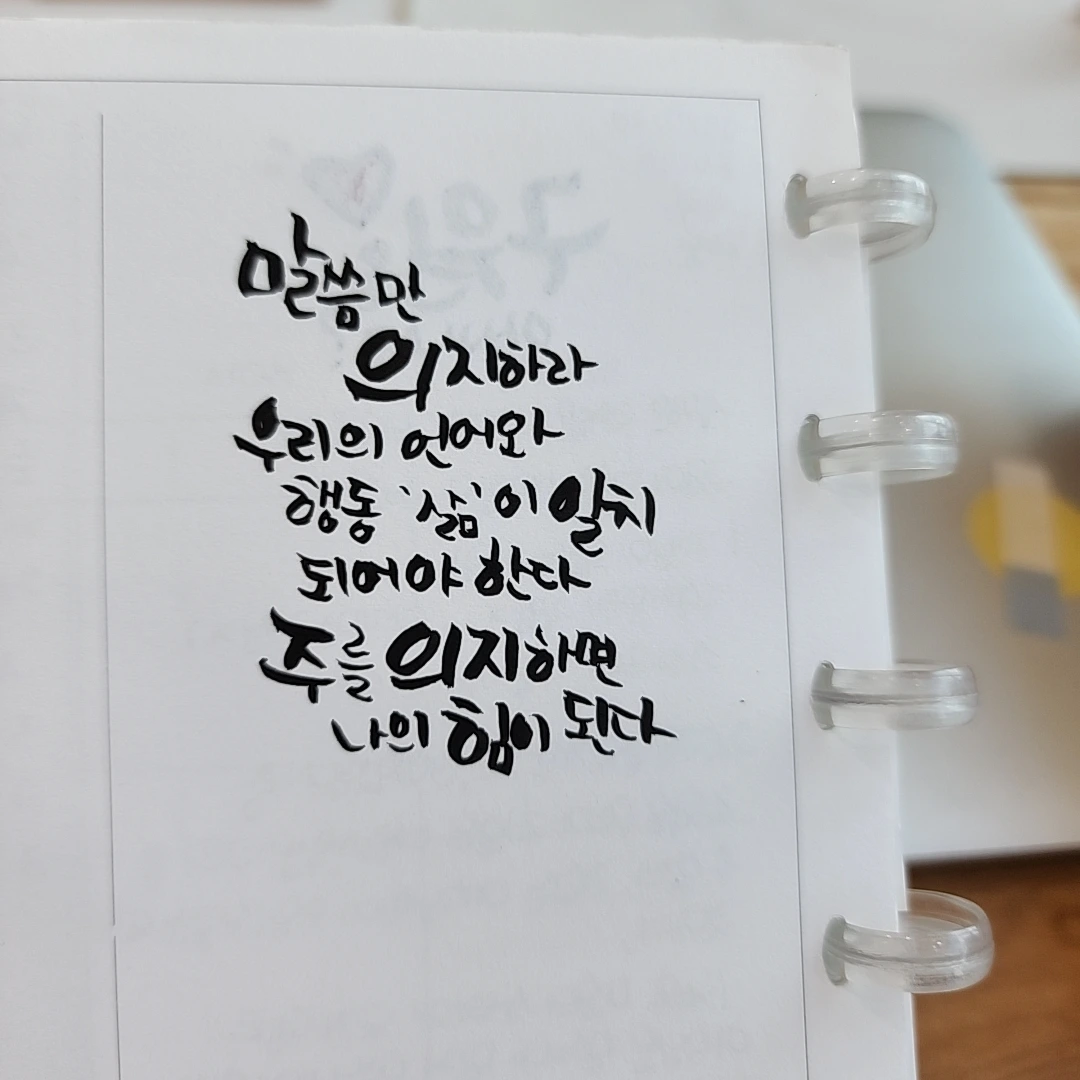 말씀만
의지하라
우리의 언어와
행동 '삶'이 일치
되어야 한다
주를 의지하면
나의 힘이 된다